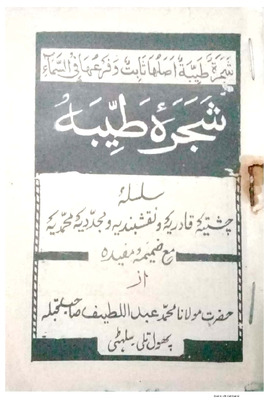 شجرة طيبة اصلها ثابت وفرعها في السماء
شجرۂ طیبہ
سلسلۂ
چشتیہ قادریہ و نقشبندیہ و مجددیہ محمدیہ
مع ضمیمہ مفیدہ
از
حضرت مولانا محمد عبداللطیف صاحب قبلہ
پھول تلی سلہٹی